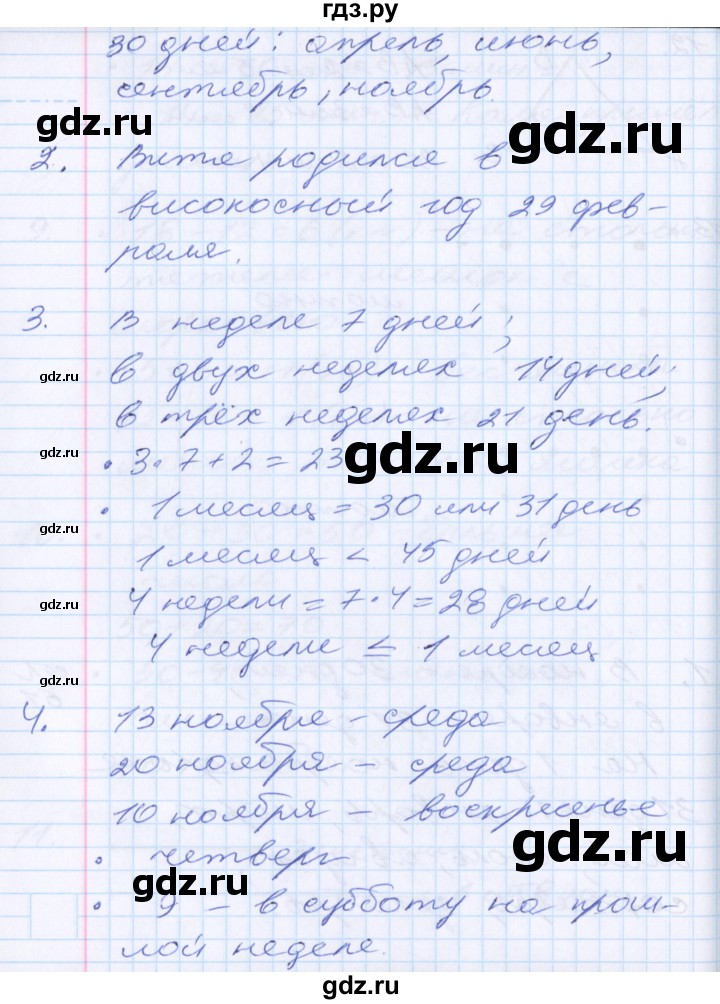 гдз.ру
30 дней: апрель, июнь,
сентябрь, ноябрь.
gdz.ru
gdz.ru
2. Витя родился в
високосный год 29 фев-
раля.
3. В неделе 7 дней;
gdz.ru
в двух неделях 14 дней;
в трёх неделях 21 день.
gdz.ru
gdz.ru
• 3·7+2=23
• 1 месяц = 30 или 31 день
gdz.ru
1 месяц < 45 дней
4 недели = 7·4=28 дней
gdz.ru
4 недели ≤ 1 месяц
gdz.ru
4. 13 ноября – среда
20 ноября – среда
10 ноября – воскресенье
gdz.ru
• четверг
gdz.ru
• 9 – в субботу на прош-
лой неделе.
gdz.ru